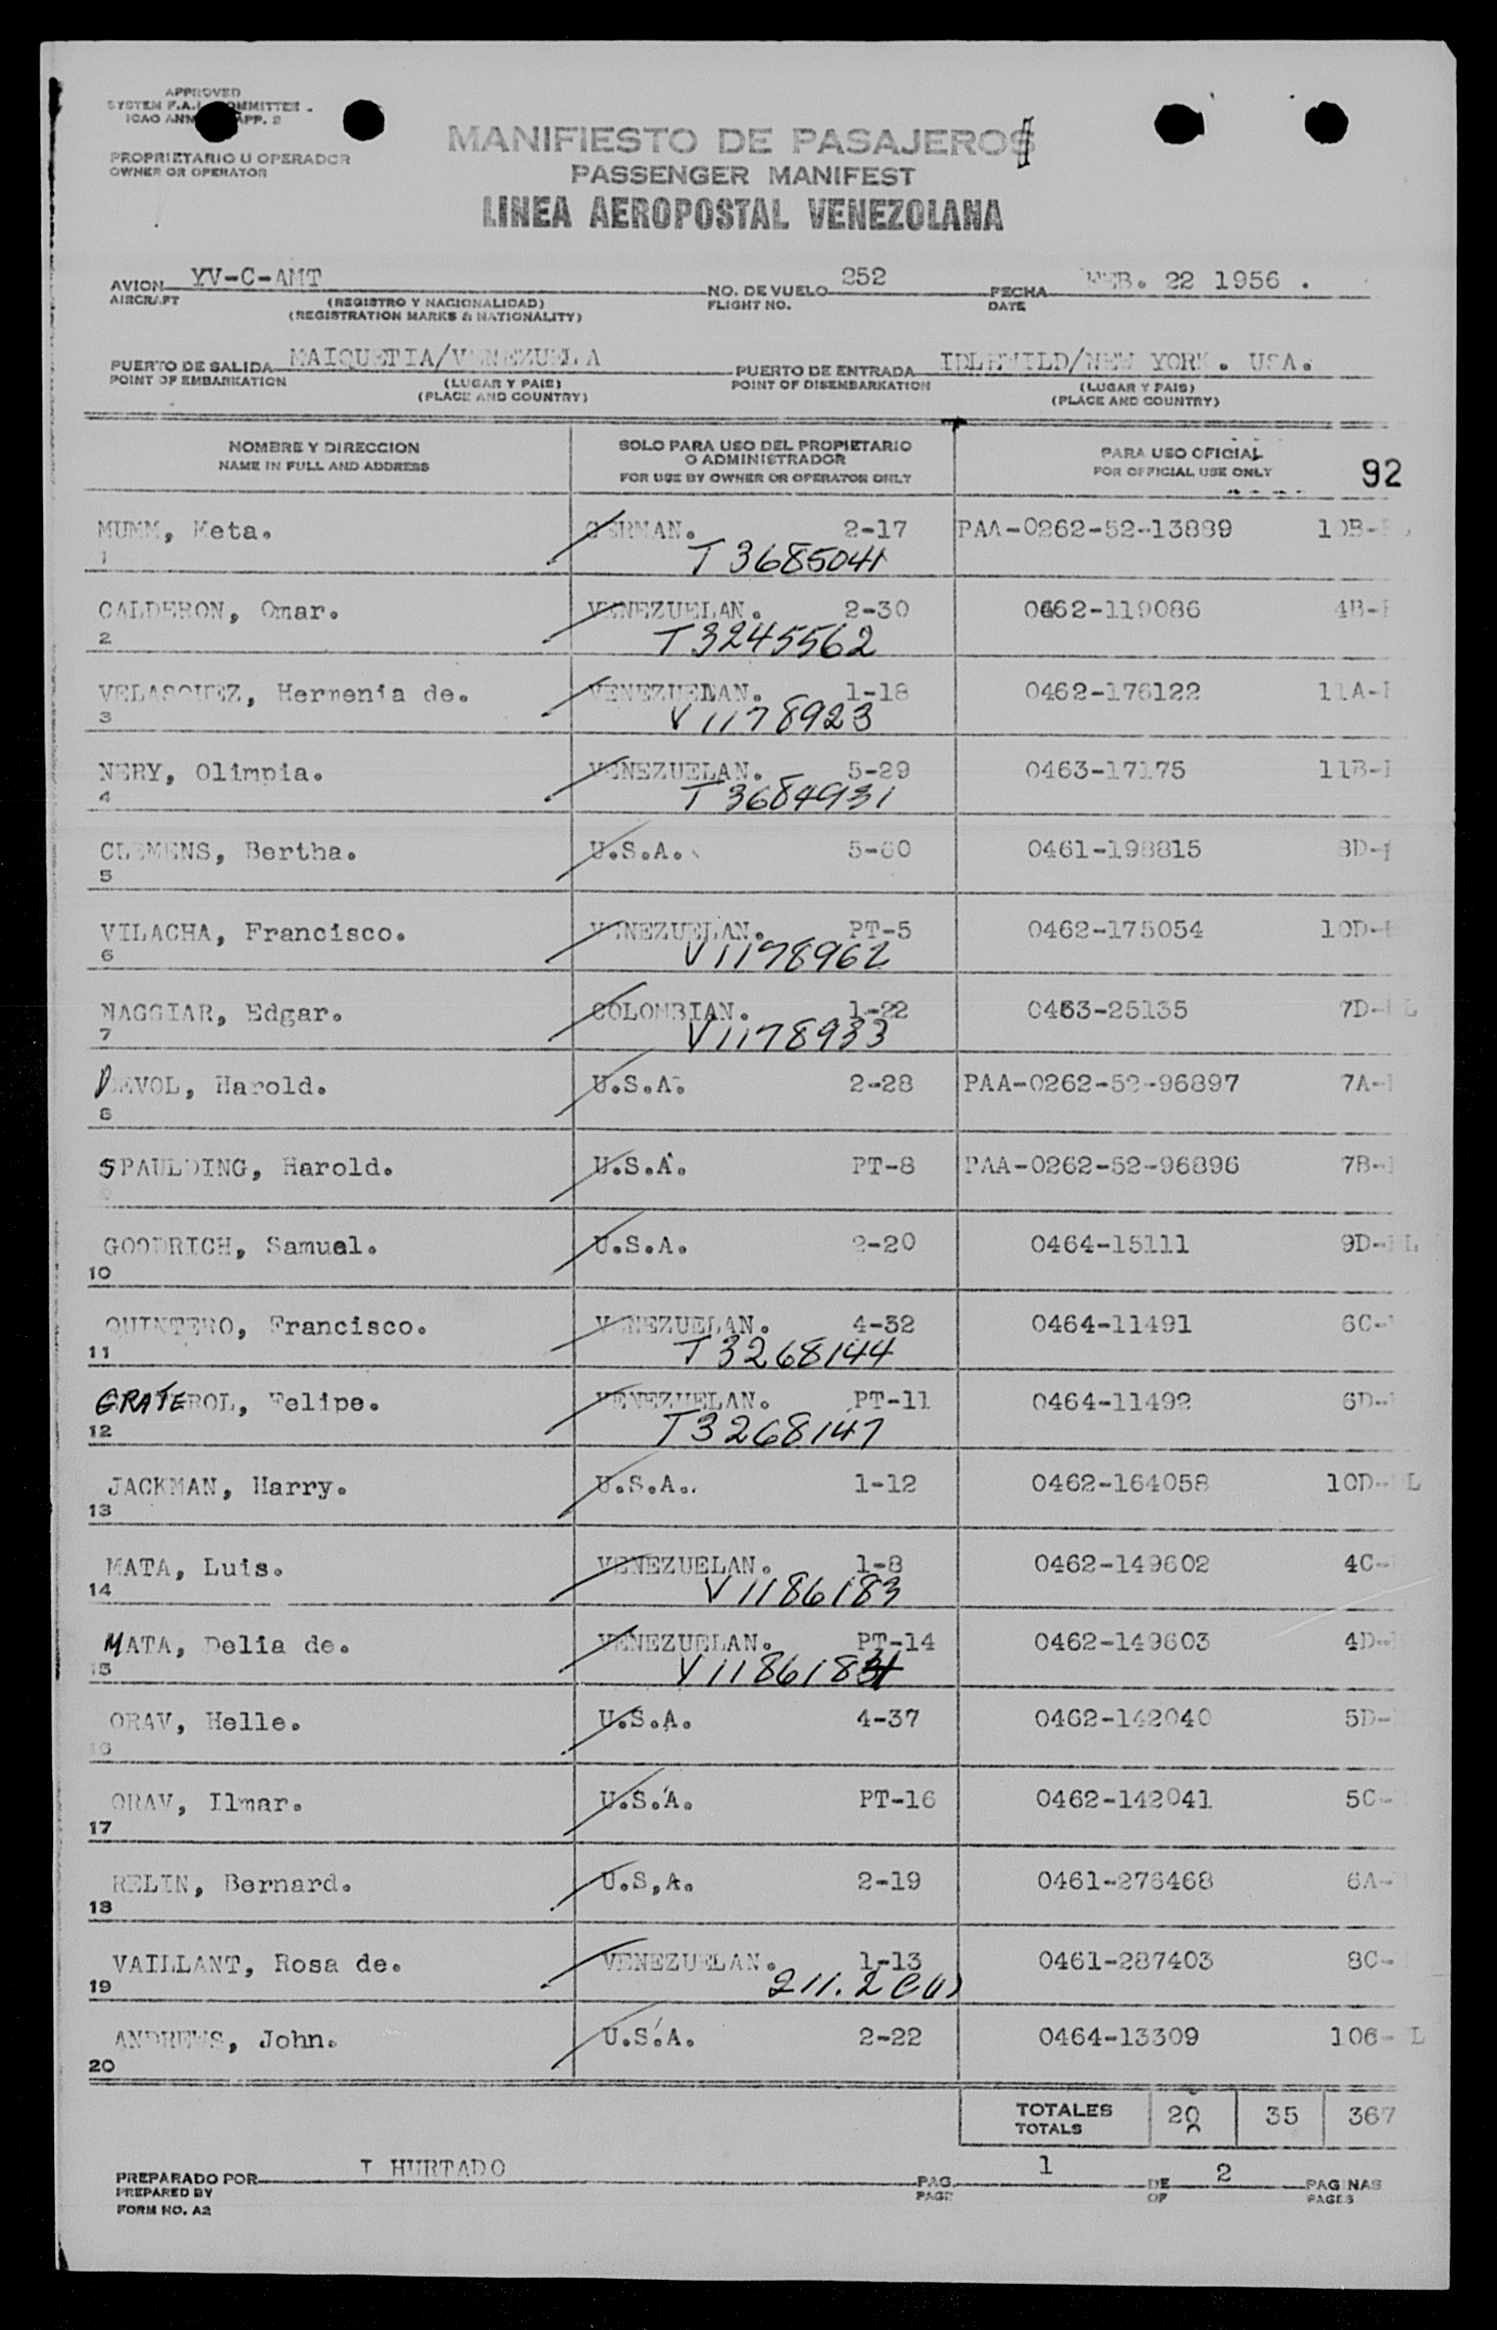 APPROVED
SYSTEM F.A.L. COMMITTEE
ICAO APP. 2
PROPRIETARIO U OPERADOR
OWNER OR OPERATOR
MANIFIESTO DE PASAJEROS
PASSENGER MANIFEST
LINEA AEROPOSTAL VENEZOLANA
AVION YV-C-AMT NO. DE VUELO 252 FECHA FEB. 22 1956 .
AIRCRAFT (REGISTRO Y NACIONALIDAD) FLIGHT NO. DATE
(REGISTRATION MARKS & NATIONALITY)
PUERTO DE SALIDA MAIQUETIA/VENEZUELA PUERTO DE ENTRADA IDLEWILD/NEW YORK. USA.
POINT OF EMBARKATION (LUGAR Y PAIS) POINT OF DISEMBARKATION (LUGAR Y PAIS)
(PLACE AND COUNTRY) (PLACE AND COUNTRY)
NOMBRE Y DIRECCION SOLO PARA USO DEL PROPIETARIO O ADMINISTRADOR PARA USO OFICIAL
NAME IN FULL AND ADDRESS FOR USE BY OWNER OR OPERATOR ONLY FOR OFFICIAL USE ONLY 92
MUMM, Meta. GERMAN. 2-17 PAA-0262-52-13889 10B-
1 T3685041
CALDERON, Omar. VENEZUELAN. 2-30 0462-119086 4B-
2 T3245562
VELASQUEZ, Hermenia de. VENEZUELAN. 1-18 0462-176122 11A-
3 V1178923
NERY, Olimpia. VENEZUELAN. 5-29 0463-17175 11B-
4 T3684931
CLEMENS, Bertha. U.S.A. 5-60 0461-198815 8D-
5
VILACHA, Francisco. VENEZUELAN. PT-5 0462-175054 10D-
6 V1178962
NAGGIAR, Edgar. COLOMBIAN. 1-22 0463-25135 7D- L
7 V1178933
DEVOL, Harold. U.S.A. 2-28 PAA-0262-52-96897 7A-
8
SPAULDING, Harold. U.S.A. PT-8 PAA-0262-52-96896 7B-
9
GOODRICH, Samuel. U.S.A. 2-20 0464-15111 9D- L
10
QUINTERO, Francisco. VENEZUELAN. 4-32 0464-11491 6C-
11 T3268144
GRATEROL, Felipe. VENEZUELAN. PT-11 0464-11492 6D-
12 T3268147
JACKMAN, Harry. U.S.A.. 1-12 0462-164058 10D- L
13
MATA, Luis. VENEZUELAN. 1-8 0462-149602 4C-
14 V1186183
MATA, Delia de. VENEZUELAN. PT-14 0462-149603 4D-
15 V1186184
ORAV, Helle. U.S.A. 4-37 0462-142040 5D-
16
ORAV, Ilmar. U.S.A. PT-16 0462-142041 5C-
17
RELIN, Bernard. U.S,A. 2-19 0461-276468 6A-
18
VAILLANT, Rosa de. VENEZUELAN. 1-13 0461-287403 8C-
19 211.2(W)
ANDREWS, John. U.S.A. 2-22 0464-13309 106- L
20
TOTALES 20 35 367
TOTALS
PREPARADO POR I HURTADO PAG. 1 DE 2 PAGINAS
PREPARED BY PAGE OF PAGES
FORM NO. A2